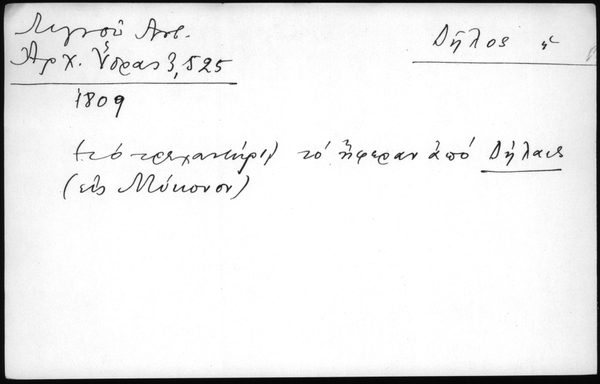 Λιγνοῦ Ἀντ.
Ἀρχ. Ὕδρας 3, 525
Δῆλος ἡ
1809
(τό τρεχαντήρι) τό ἤφεραν ἀπό Δήλαις
(εἰς Μύκονον)